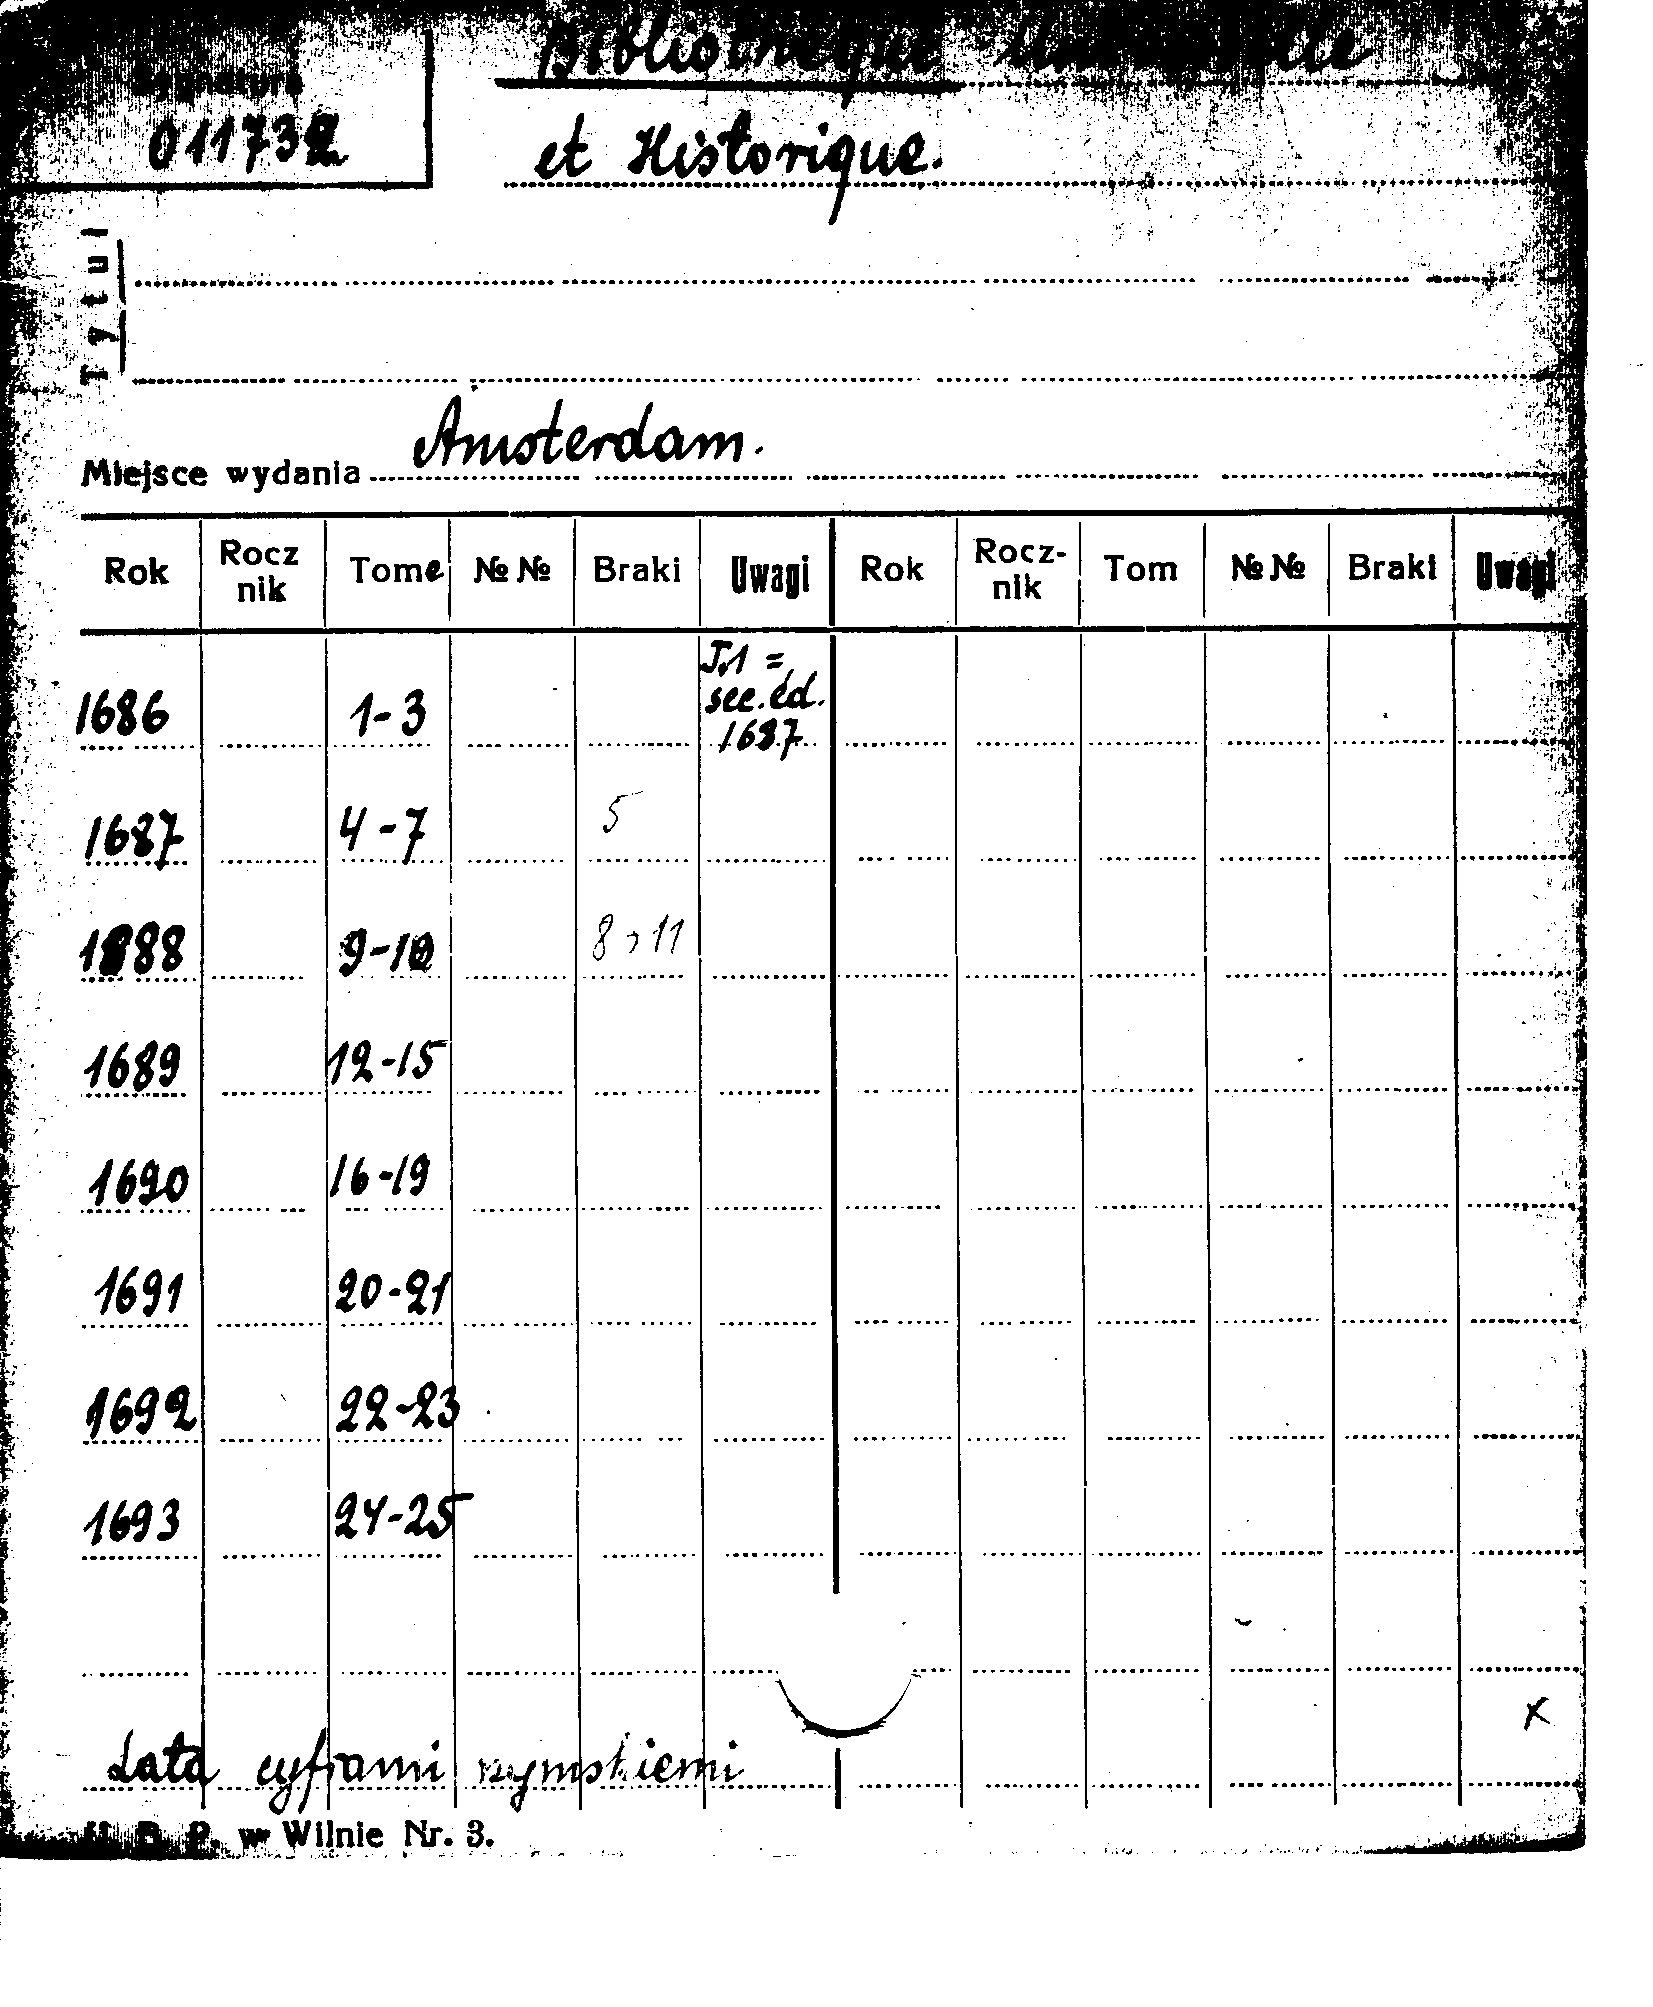 Sygnatura
011732
Bibliothèque Universelle
et Historique.
Tytuł
Miejsce wydania Amsterdam.
Rok Rocz nik Tome №№ Braki Uwagi Rok Rocz- nik Tom №№ Braki Uwagi
1686 1-3 T.1 = sec. éd. 1687
1687 4-7 5
1688 9-10 8, 11
1689 12-15
1690 16-19
1691 20-21
1692 22-23
1693 24-25
x
Lata cyframi rzymskiemi
U. B. P. w Wilnie Nr. 3.